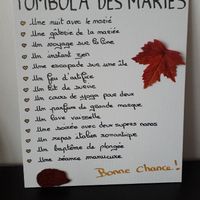 TOMBOLA DES MARIÉS
Une nuit avec le marié
Une gâterie de la mariée
Un voyage sur la lune
Un instant zen
Une escapade sur une île
Un feu d'artifice
Un lot de survie
Un cours de yoga pour deux
Un parfum de grande marque
Un lave vaisselle
Une soirée avec deux supers nanas
Un repas italien romantique
Un baptême de plongée
Une séance manucure
Bonne Chance!